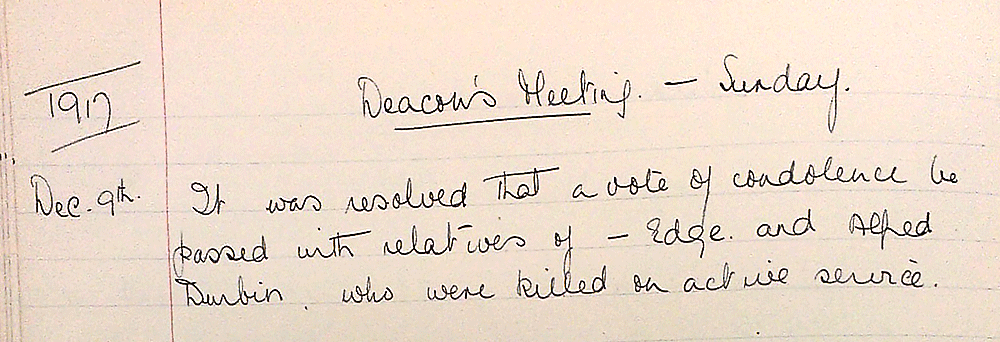 1917
Deacon's Meeting. — Sunday.
Dec. 9th. It was resolved that a vote of condolence be
passed with relatives of – Edge. and Alfred
Durbin, who were killed on active service.